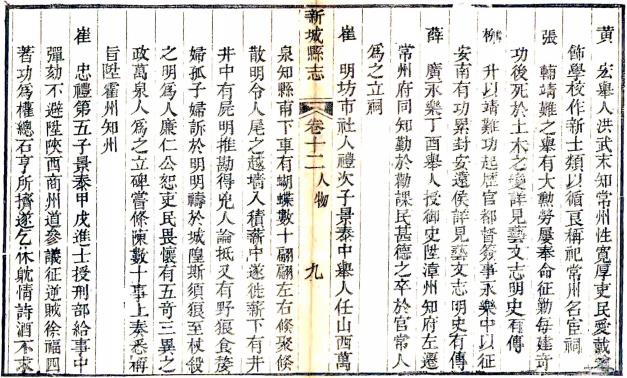 黃　宏舉人洪武末知常州性寬厚吏民愛戴脩
飭學校作新士類以循良稱祀常州名宦祠
張　輔靖難之舉有大勲勞屢奉命征勦每建奇
功後死於土木之變詳見藝文志明史有傳
柳　升以靖難功起歷官都督簽事永樂中以征
安南有功累封安遠侯詳見藝文志明史有傳
薛　廣永樂丁酉舉人授御史陞漳州知府左遷
常州府同知勤於勸課民甚德之卒於官常人
爲之立祠
新城縣志　卷十二　人物　九
崔　明坊市社人禮次子景泰中舉人任山西萬
泉知縣甫下車有蝴蝶數十翩翩左右條聚條
散明令人尾之越墻入積薪中遂徙薪下有井
井中有屍明推勘得兇人論抵又有野狼食嫠
婦孤子婦訴於明明禱於城隍斯須狼至杖殺
之明爲人廉仁公恕吏民畏懷有五奇三異之
政萬泉人爲之立碑嘗條陳數十事上奏悉稱
旨陞霍州知州
崔　忠禮第五子景泰甲戌進士授刑部給事中
彈劾不避陞陝西商州道參議征逆賊徐福四
著功爲權總石亨所擠遂乞休躭情詩酒不求